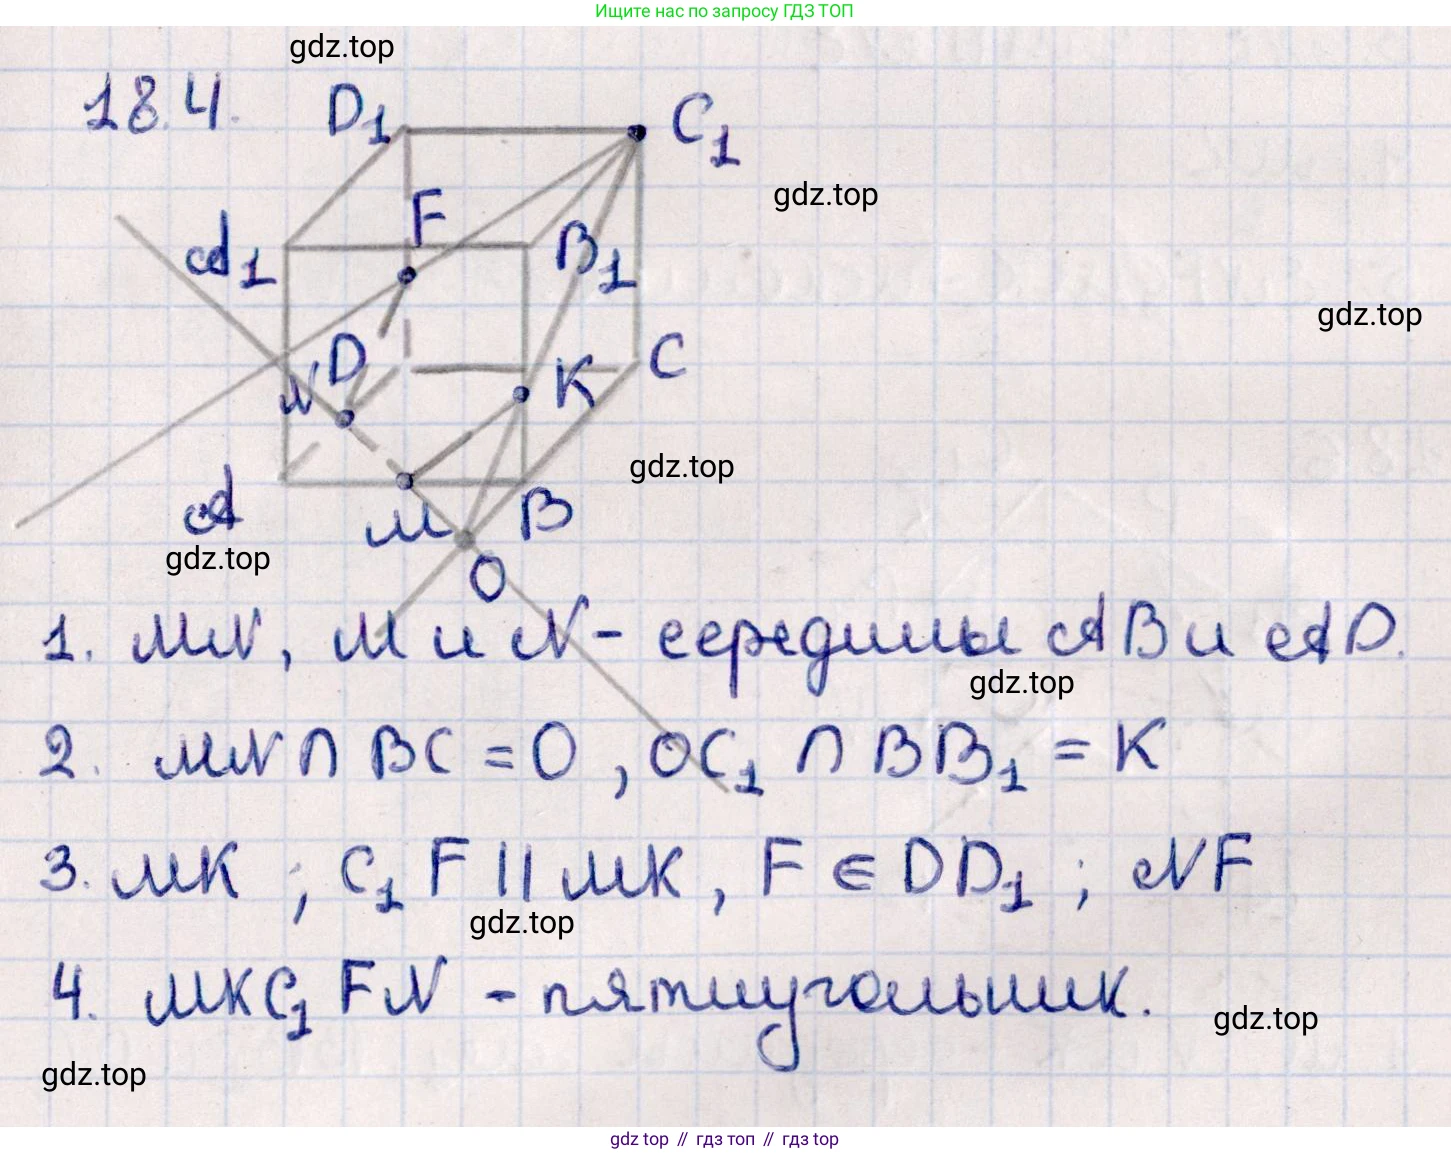 Ищите нас по запросу ГДЗ ТОП
gdz.top
18.4.
D1
C1
gdz.top
F
A1
B1
gdz.top
D
C
N
K
gdz.top
A
M
B
gdz.top
O
1. MN, M и N - середины AB и AD.
gdz.top
2. MN ∩ BC = O, OC1 ∩ BB1 = K
3. MK; C1F || MK, F ∈ DD1; NF
gdz.top
4. MKC1FN - пятиугольник.
gdz.top
gdz.top
gdz top // гдз топ // гдз top